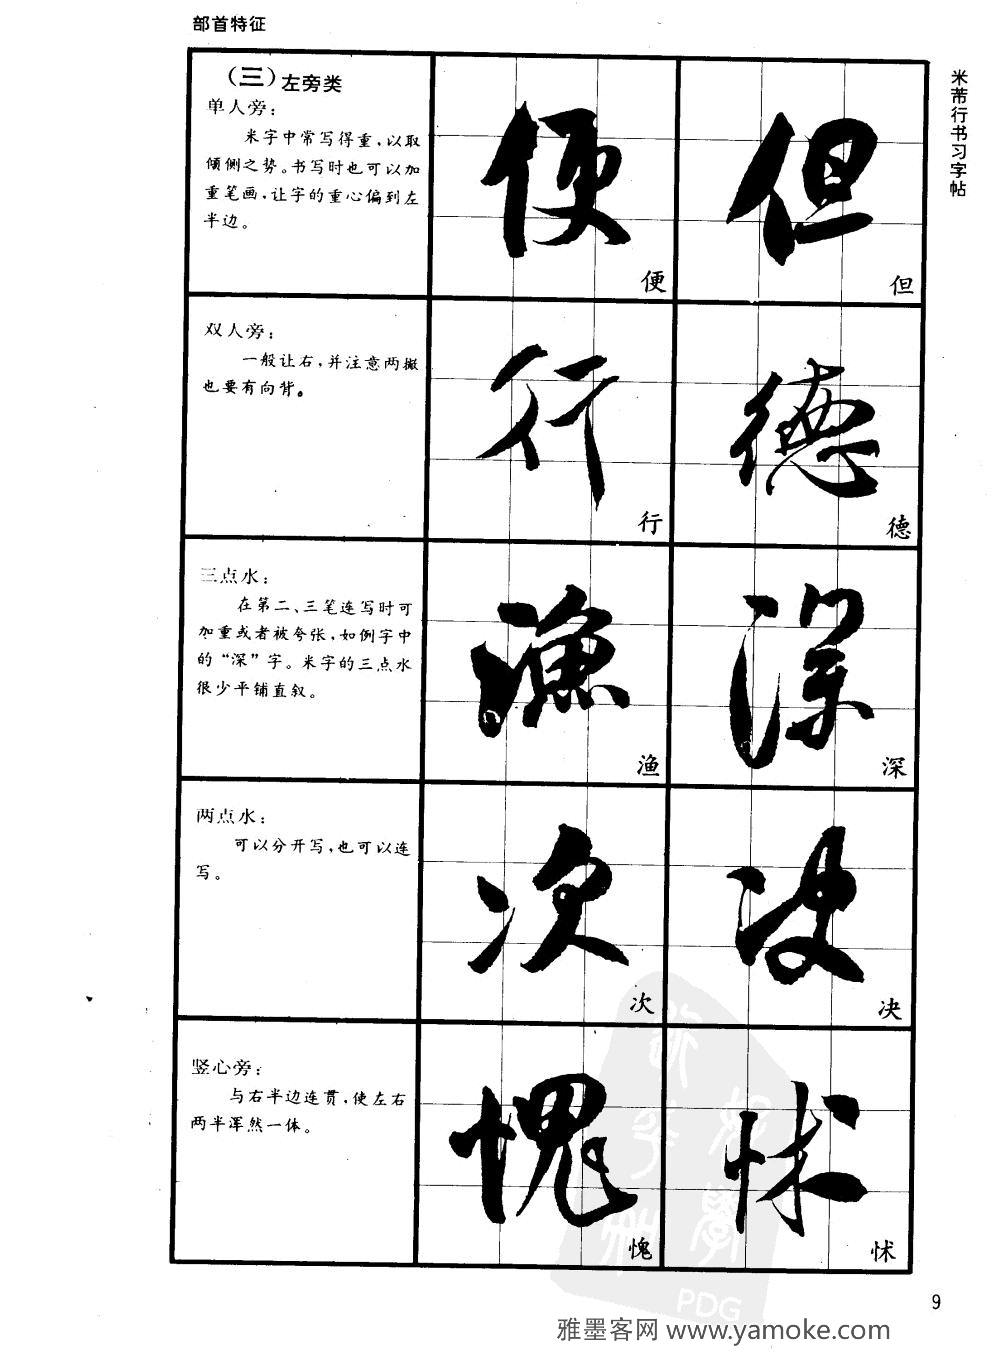 部首特征
米芾行书习字帖
（三）左旁类
单人旁：
米字中常写得重，以取
倾侧之势。书写时也可以加
重笔画，让字的重心偏到左
半边。
便 但
便 但
双人旁：
一般让右，并注意两撇
也要有向背。
行 德
行 德
三点水：
在第二、三笔连写时可
加重或者被夸张，如例字中
的“深”字。米字的三点水
很少平铺直叙。
渔 深
渔 深
两点水：
可以分开写，也可以连
写。
次 决
次 决
竖心旁：
与右半边连贯，使左右
两半浑然一体。
愧 怵
愧 怵
PDG
9
雅墨客网 www.yamoke.com